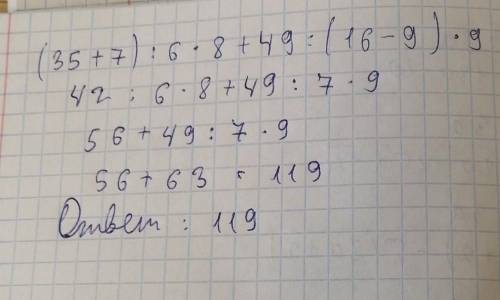 (35+7):6·8+49:(16-9)·9
42:6·8+49:7·9
56+49:7·9
56+63=119
Ответ: 119